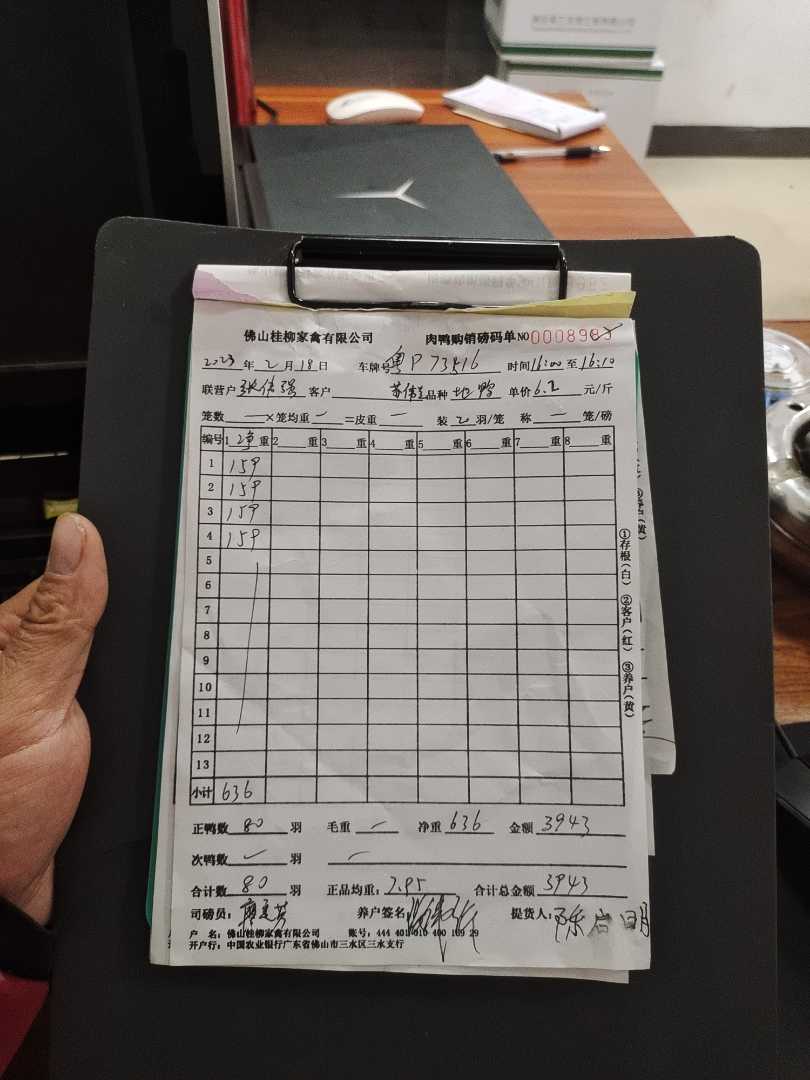 佛山桂柳家禽有限公司 肉鸭购销磅码单 NO 0008983
2023年2月18日 车牌号粤P73K16 时间16:00至16:10
联营户张伟强 客户 品种地鸭 单价6.2元/斤
笼数—×笼均重—=皮重— 装20羽/笼 称—笼/磅
编号 1净重 2重 3重 4重 5重 6重 7重 8重
1 159
2 159
3 159
4 159
5
6
7
8
9
10
11
12
13
小计 636
正鸭数80羽 毛重— 净重636 金额3943
次鸭数—羽 —
合计数80羽 正品均重:7.95 合计总金额3943
司磅员: 养户签名 提货人:陈启明
户 名:佛山桂柳家禽有限公司 账号:444 401 010 400 109 29
开户行:中国农业银行广东省佛山市三水区三水支行
①存根(白) ②客户(红) ③养户(黄)